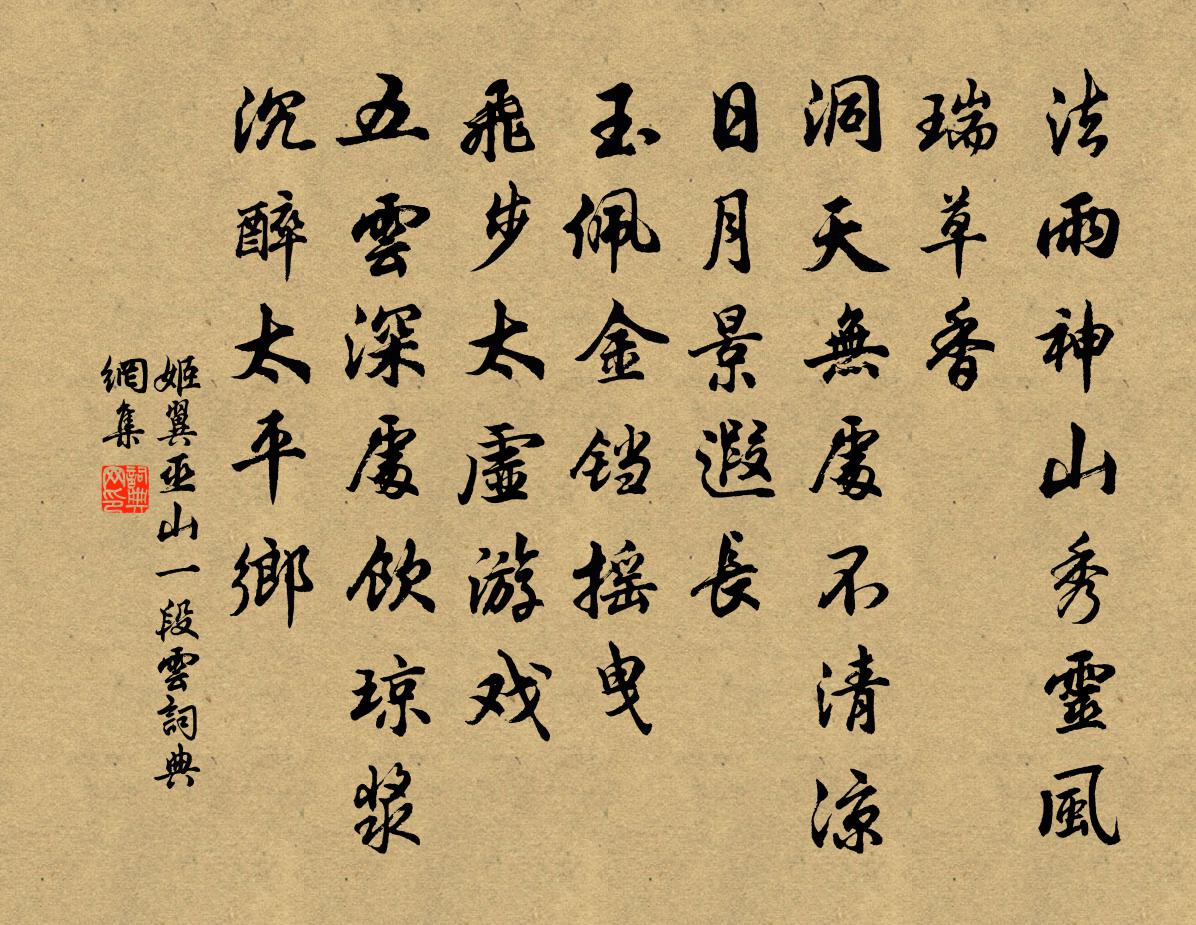 法雨神山秀靈風
瑞草香
洞天無處不清涼
日月景遐長
玉佩金铛摇曳
飛步太虛游戏
五雲深處飲琼漿
沉醉太平鄉
姬翼巫山一段雲詞典
網集
詞典
网印